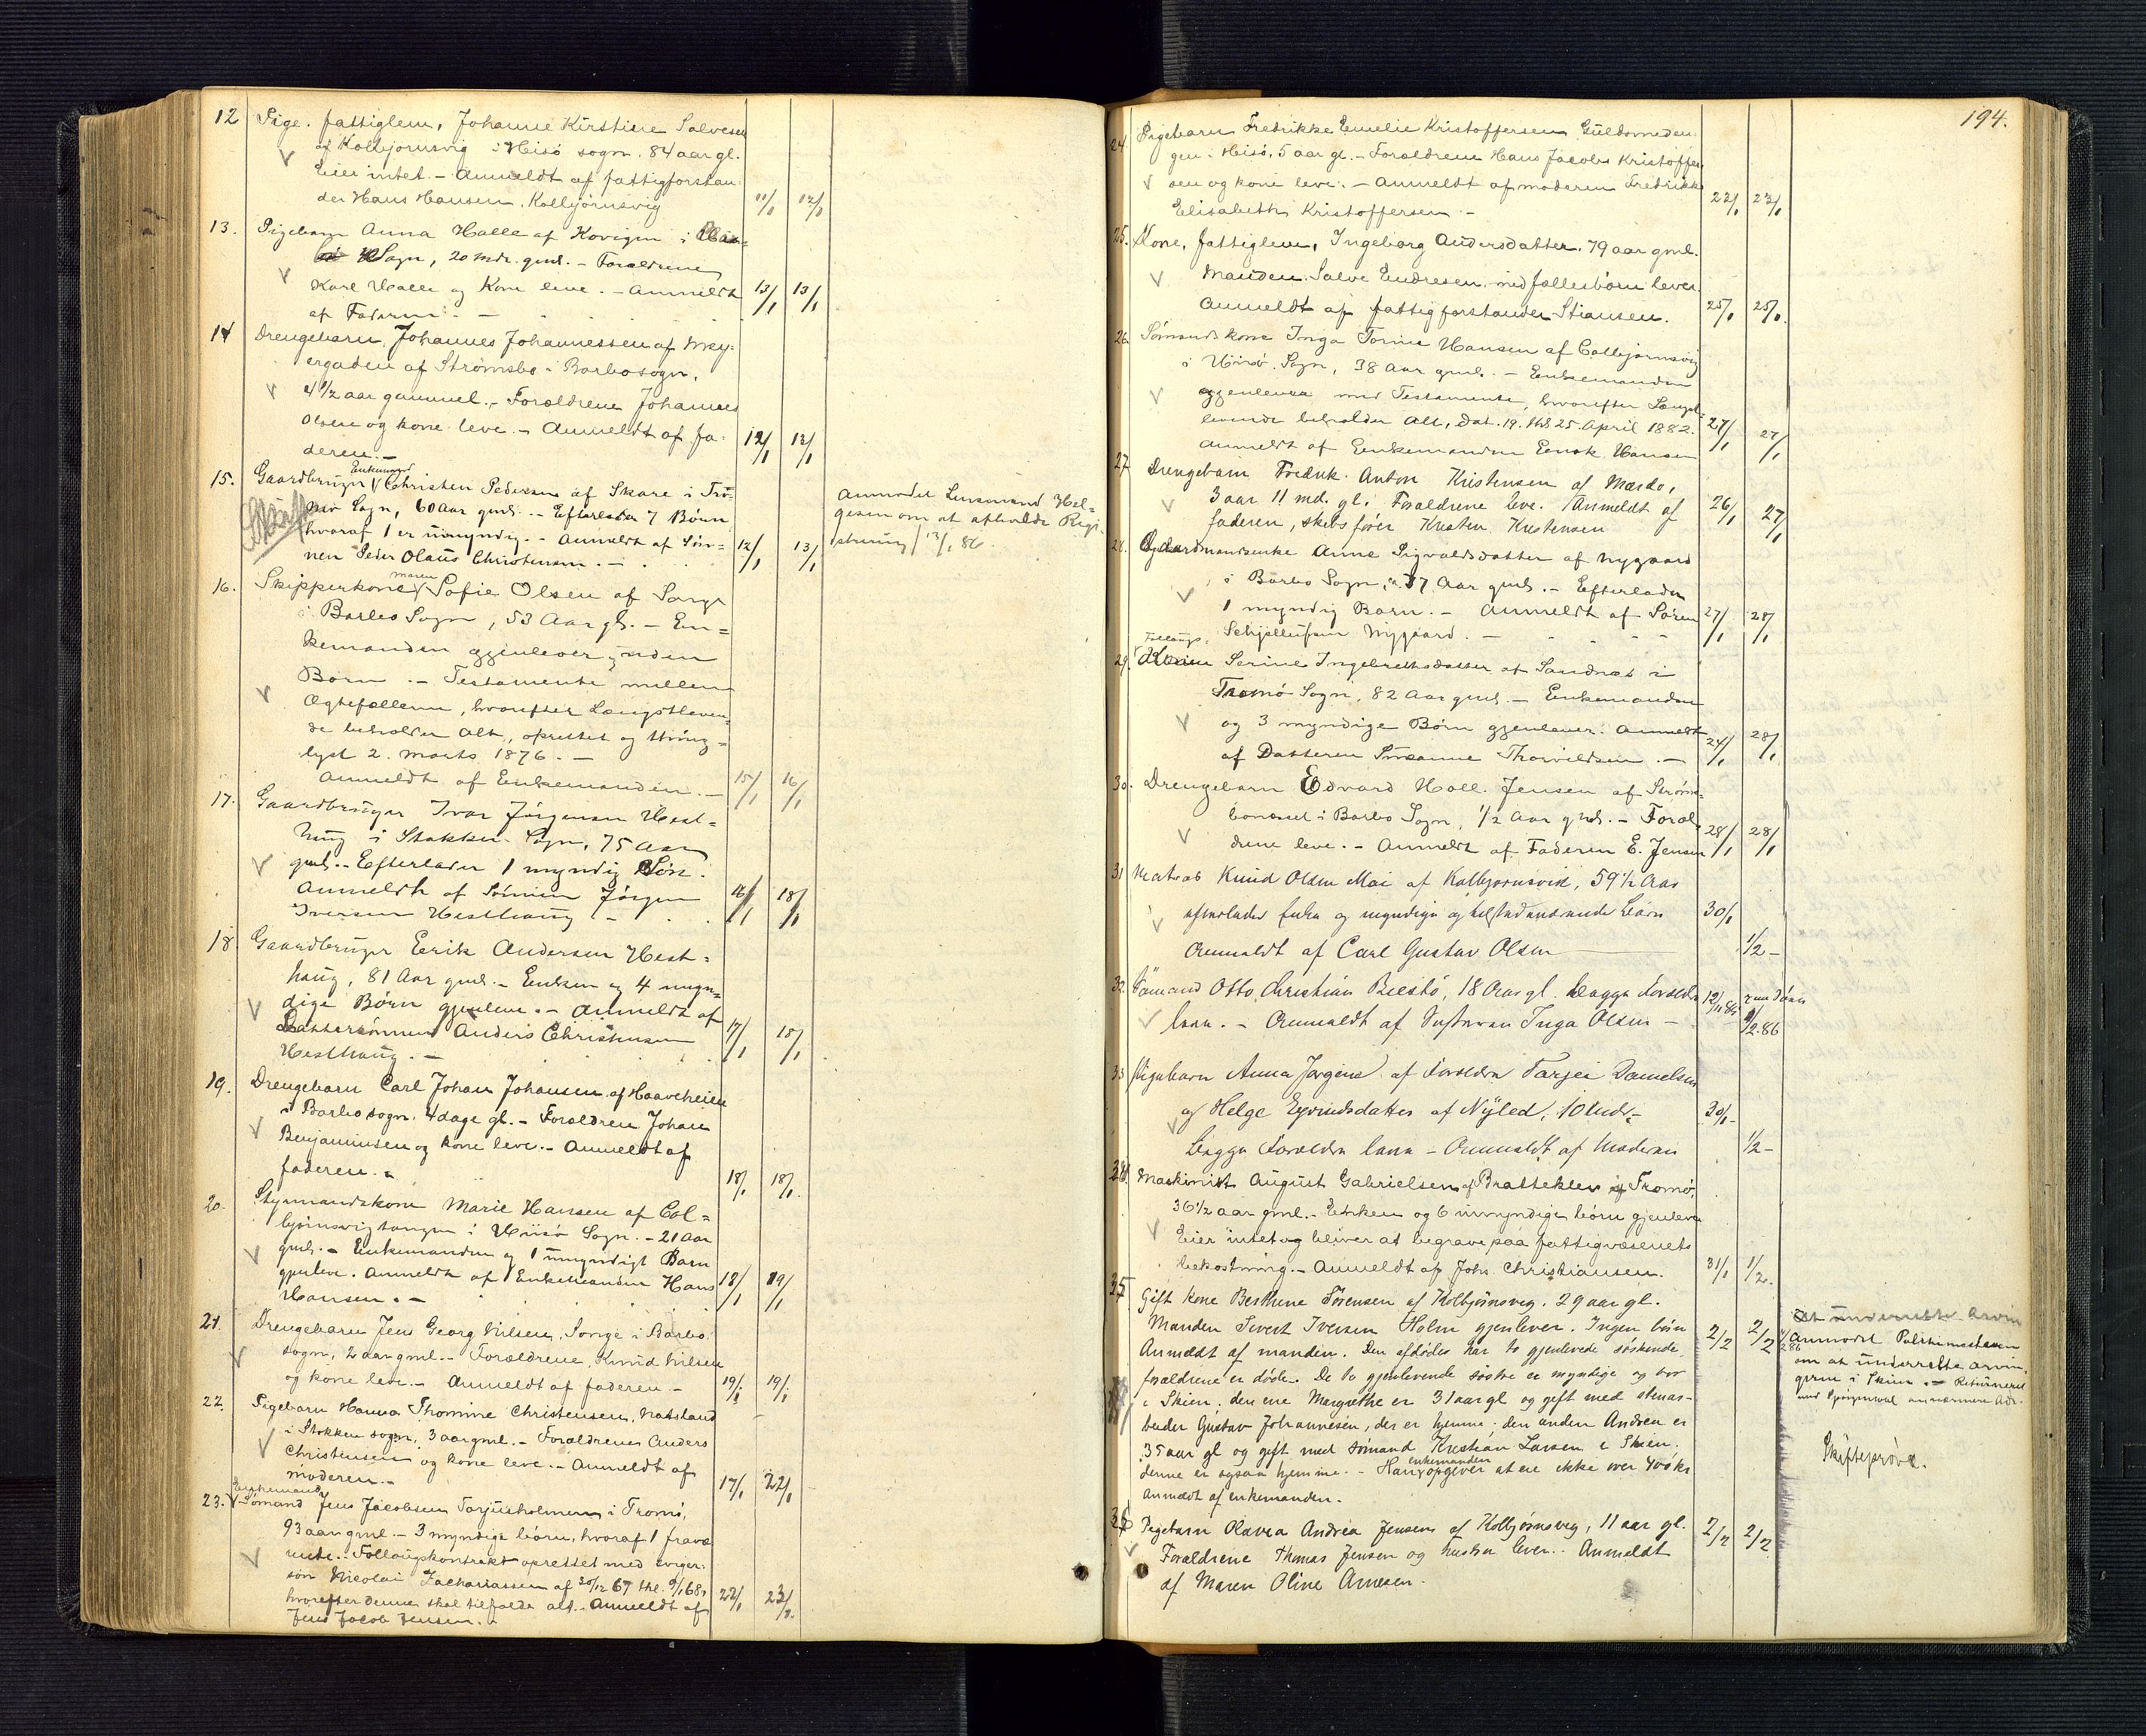 12 Pige. fattiglem, Johanne Kirstine Salvesen
af Kolbjørnsvig i Hisø sogn. 84 aar gl.
Eier intet. – Anmeldt af fattigforstan
der Hans Hansen, Kolbjørnsvig 11/1 12/1
13. Pigebarn Anna Halle af Kovigen i
Sogn, 20 mdr. gml. – Forældrene
Karl Halle og Kone leve. – Anmeldt 13/1 13/1
af Faderen. –
14 Drengebarn, Johannes Johannessen af
ergaden af Strømsbo i Barbo sogn.
4 1/2 aar gammel. – Forældrene Johannes
Olsen og kone leve. – Anmeldt af fa-
deren. – 12/1 12/1
15. Gaardbruger Enkemand Christen Pedersen af Skare i Trø-
mø Sogn, 60 Aar gml. – Efterlader 7 Børn
hvoraf 1 er umyndig. – Anmeldt af Søn-
nen Peder Olaus Christensen. – 12/1 13/1
Anmodet Lensmand Hel-
gesen om at afholde Regi-
strering 13/1 86.
16. Skipperkone Maren Sofie Olsen af Songe
i Barbo Sogn, 53 Aar gl. – En=
kemanden gjenlever, uden
Børn. – Testamente mellem
Ægtefællerne, hvorefter Længstleven-
de beholder Alt, oprettet og thing=
lyst 2. Marts 1876. –
Anmeldt af Enkemanden. – 15/1 16/1
17. Gaardbruger Ivar Jørgensen Hest=
haug i Stokken Sogn, 75 Aar
gml. – Efterlader 1 myndig Søn.
Anmeldt af Sønnen Jørgen
Iversen Hesthaug – 16/1 18/1
18. Gaardbruger Eerik Andersen Hest=
haug, 81 Aar gml. – Enken og 4 myn-
dige Børn gjenleve. – Anmeldt af
Dattersønnen Anders Christensen
Hesthaug. – 17/1 18/1
19. Drengebarn Carl Johan Johansen af Haaveheien
i Barbo sogn. 4 dage gl. – Forældrene Johan
Benjaminsen og kone leve. – Anmeldt af
faderen. – 18/1 18/1.
20. Styrmandskone Marie Hansen af Col=
bjørnsvigtangen i Hisø Sogn. – 21 Aar
gml. – Enkemanden og 1 umyndigt Barn
gjenleve. Anmeldt af Enkemanden Hans 18/1 19/1
Hansen. –
21. Drengebarn Jens Georg Nilsen, Songe i Barbo
sogn, 2 aar gml. – Forældrene, Knud Nilsen
og kone leve. – Anmeldt af faderen. – 19/1 19/1
22. Pigebarn Hanna Thomine Christensen, Natsland
i Stokken sogn, 3 aar gml. – Forældrene Anders
Christensen og kone leve. – Anmeldt af
moderen. – 17/1 22/1
Enkemand
23. Sømand Jens Jacobsen Torjusholmen i Tromø,
93 aar gml. – 3 myndige børn, hvoraf 1 fravæ
rende. – Føllaugskontrakt oprettet med sviger-
søn Nicolai Zachariassen af 30/12 67 thl. 9/1 68,
hvorefter denne skal tilfalde alt. – Anmeldt af 22/1 23/1.
Jens Jacob Jensen. –
194.
24. Pigebarn Fredrikke Emelie Kristoffersen Guldsmeden
gen i Hisø, 5 aar gl. – Forældrene Hans Jacob Kristoffer
sen og kone leve. – Anmeldt af moderen Fredrikke
Elisabeth Kristoffersen – 22/1 23/1
25. Kone, fattiglem, Ingeborg Andersdatter. 79 aar gml.
Manden Salve Endresen med fællesbørn lever.
Anmeldt af fattigforstander Stiansen. 25/1 25/1.
26. Sømandskone Inga Torine Hansen af Colbjørnsvig
i Hisø Sogn, 38 Aar gml. – Enkemanden
gjenlever med Testamente, hvorefter Længst-
levende beholder Alt, Dat. 19. thl. 25. April 1882.
Anmeldt af Enkemanden Enok Hansen 27/1 27/1
27 Drengebarn Fredrik Anton Kristensen af Mærdo,
3 aar 11 md. gl. Forældrene leve. Anmeldt af
faderen, skibsfører Kristen Kristensen 26/1 27/1
28. Gaardmandsenke Anne Sigvaldsdatter af Nygaard
i Barbo Sogn, 87 Aar gml. – Efterlader
1 myndig Barn. – Anmeldt af Søren 27/1 28/1
Schjelluksen Nygaard. –
Føllaugs
29. Konen Serine Ingebrethsdatter af Sandnæs i
Tromø Sogn, 82 Aar gml. – Enkemanden
og 3 myndige Børn gjenlever. Anmeldt
af Datteren Susanne Thorvildsen. – 24/1 28/1
30. Drengebarn Edvard Hall. Jensen af Strøms-
bonæset i Barbo Sogn, 1/2 Aar gml. – Foræl
drene leve. – Anmeldt af Faderen E. Jensen 28/1 28/1
31 Matros Knud Olsen Mai af Kolbjornsvik, 59 1/2 Aar
efterlader Enke og myndige og tilstedeværende Børn 30/1
Anmeldt af Carl Gustav Olsen 1/2 –
32. Sømand Otto Christian Bilstø, 18 Aar gl. begge Forældre 12/11 85
leve. – Anmeldt af Søsteren Inga Olsen – 1/2 86
33 Pigebarn Anna Jørgine af Forældre Tarjei Danielsen
og Helge Eyvindsdatter af Nyled, 10 Mdr. 30/1 –
Begge Forældre leve – Anmeldt af Moderen 1/2 –
34. Maskinist August Gabrielsen af Bratteklev i Tromø,
36 1/2 aar gml. – Enken og 6 umyndige børn gjenleve
Eier intet og bliver at begrave paa fattigvæsenets
bekostning. – Anmeldt af Johs. Christiansen. 31/1 1/2.
35 Gift kone Berthine Sørensen af Kolbjørnsveg. 29 aar gl.
Manden Sivert Iversen Holm gjenlever. Ingen børn 2/2 2/2
Anmeldt af manden. Den afdødes har to gjenlevende søskende,
forældrene er døde. De to gjenlevende søstre er myndige og bor
i Skien, den ene Margrethe er 31 aar gl og gift med stenar-
beider Gustav Johannesen, der er hjemme; den anden Andrea er
35 aar gl og gift med sømand Kristian Larsen i Skien,
denne er ogsaa hjemme. – Han enkemanden opgiver at eie ikke over 400 kr
Anmeldt af enkemanden.
At underrette Arvin
Anmodet Politimesteren
om at underrette arvin-
gerne i Skien. – Returneret
Skifteprøve.
36 Pigebarn Olavea Andrea Jensen af Kolbjørnsveg, 11 aar gl. 2/2 2/2
Forældrene Thomas Jensen og hustru lever. Anmeldt
af Maren Oline Arnesen.